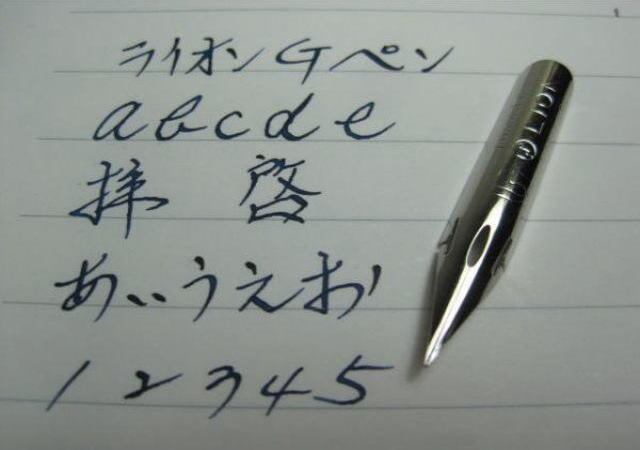 ライオンGペン
abcde
拝啓
あいうえお
12345